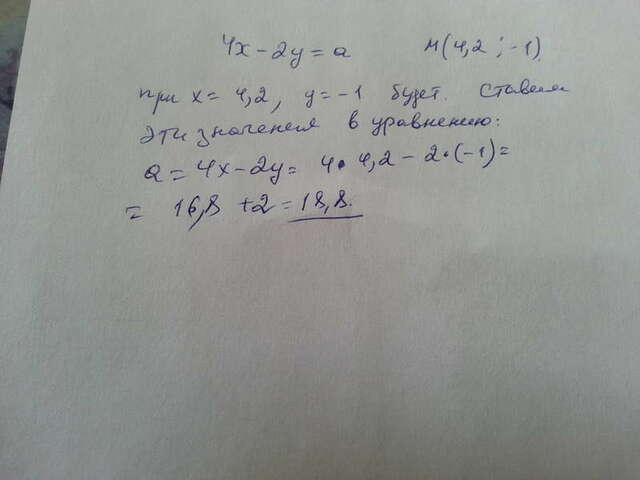 4x-2y=a M(4,2;-1)
при x=4,2, y=-1 будет. Ставим
эти значения в уравнению:
a=4x-2y=4•4,2-2•(-1)=
= 16,8+2=18,8.